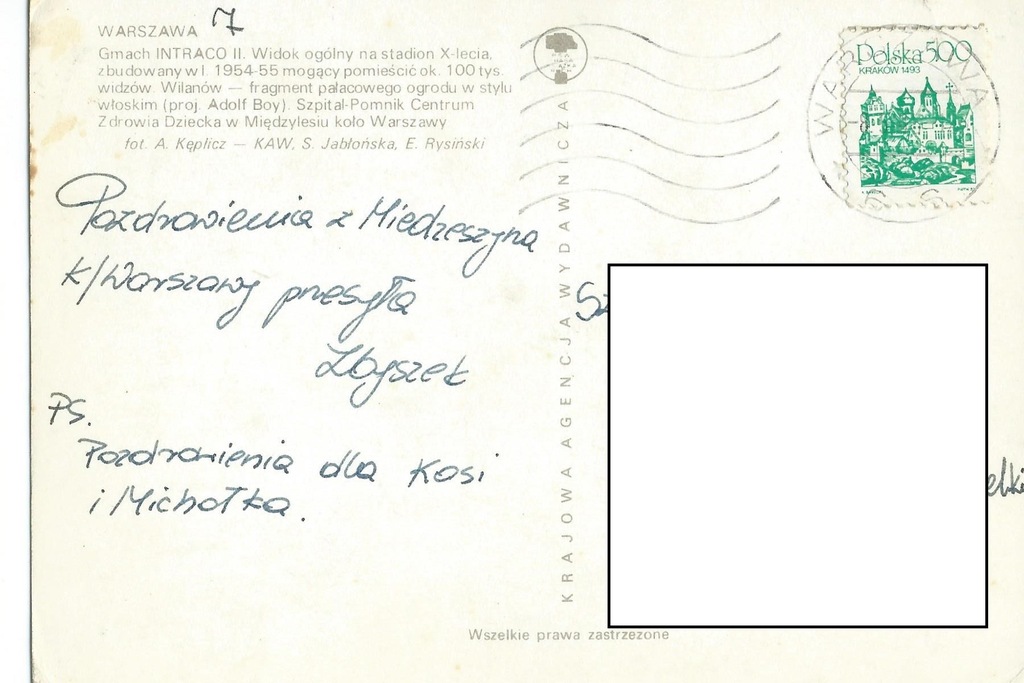 WARSZAWA
7
Gmach INTRACO II. Widok ogólny na stadion X-lecia,
zbudowany w l. 1954-55 mogący pomieścić ok. 100 tys.
widzów. Wilanów — fragment pałacowego ogrodu w stylu
włoskim (proj. Adolf Boy). Szpital-Pomnik Centrum
Zdrowia Dziecka w Międzylesiu koło Warszawy
fot. A. Kęplicz — KAW, S. Jabłońska, E. Rysiński
Pozdrowienia z Miedzeszyna
k/Warszawy przesyła
Zbyszek
PS.
Pozdrowienia dla Kasi
i Michałka.
KRAJOWA AGENCJA WYDAWNICZA
Polska 500
KRAKÓW 1493
Sz
elki
Wszelkie prawa zastrzeżone